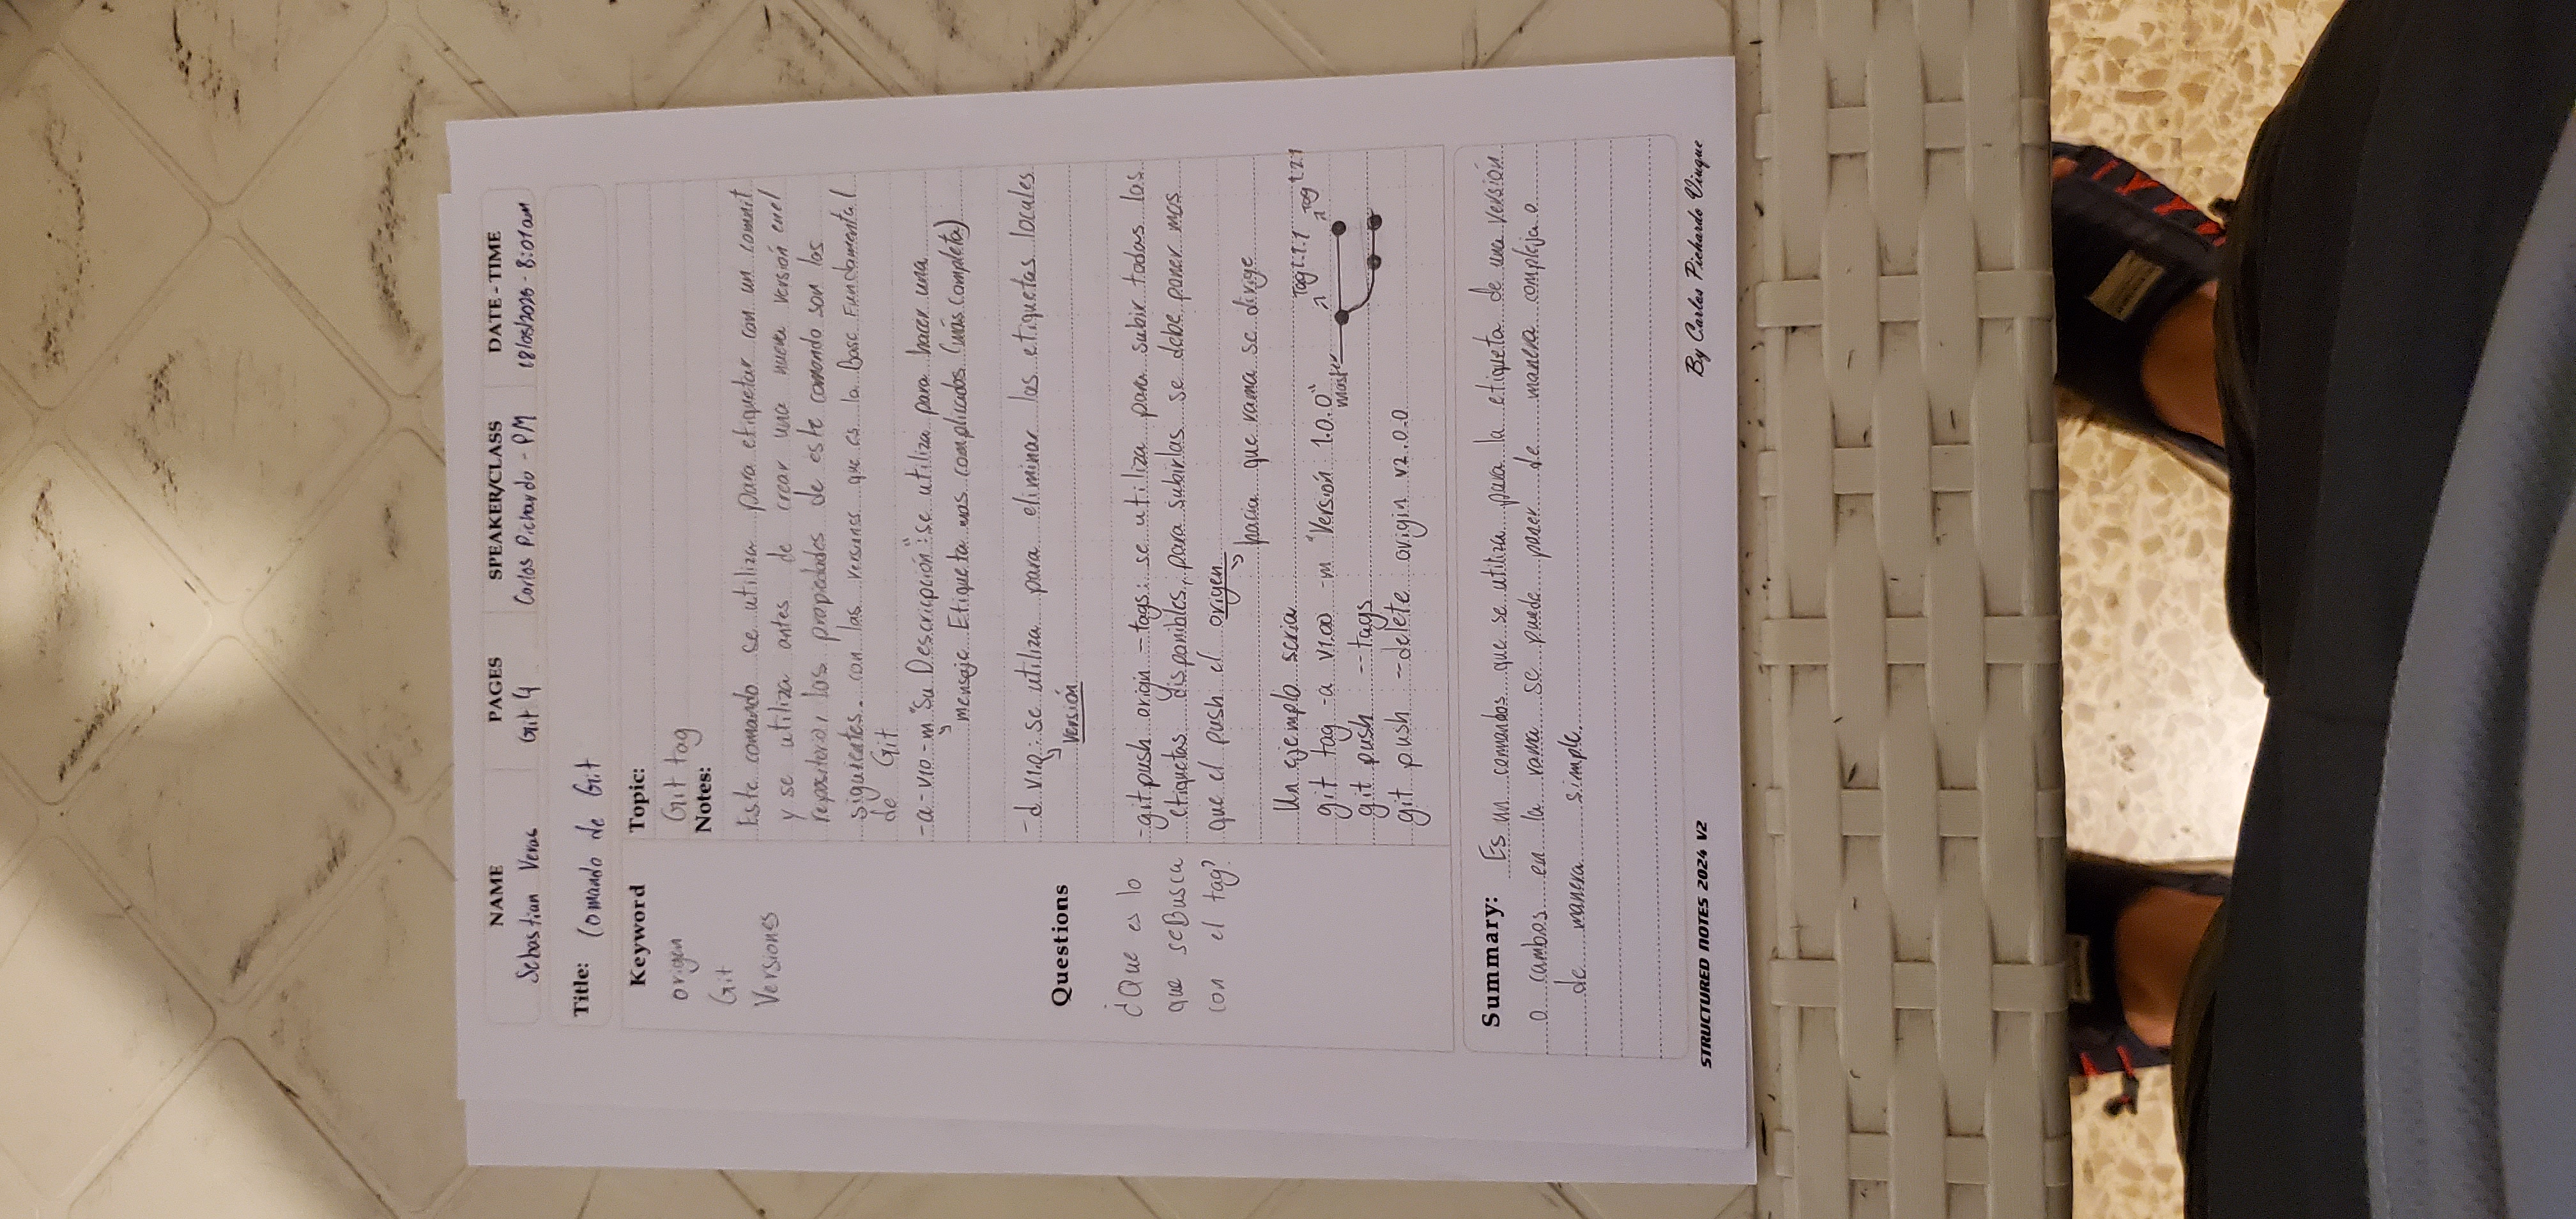 NAME PAGES SPEAKER/CLASS DATE - TIME
Sebastian Veras Git 4 Carlos Pichardo - PM 18/05/2025 - 8:01am
Title: Comando de Git
Keyword
origen
Git
Versiones
Topic:
Git tag
Notes:
Este comando se utiliza para etiquetar con un commit
y se utiliza antes de crear una nueva versión en el
repositorio, las propiedades de este comando son las
siguientes. con las versiones que es la Base Fundamental
de Git
-a -v10 -m "Su Descricpción": se utiliza para hacer una
mensaje Etiqueta mas complicados (más completa)
-d v1.0: se utiliza para eliminar las etiquetas locales
Versión
Questions
¿Que es lo
que seBusca
con el tag?
-git push origin --tags: se utiliza para subir todas las
etiquetas disponibles, para subirlas se debe poner mas
que el push el origen
hacia que rama se dirige
Un ejemplo seria
git tag -a v1.00 -m "Versión 1.0.0"
git push --tags
git push --delete origin v2.0.0
master Tag 1.1.1 Tag 1.2.1
Summary: Es un comandos que se utiliza para la etiqueta de una versión
o cambos en la rama se puede poner de manera compleja o
de manera simple.
STRUCTURED NOTES 2024 V2
By Carlos Pichardo Viuque